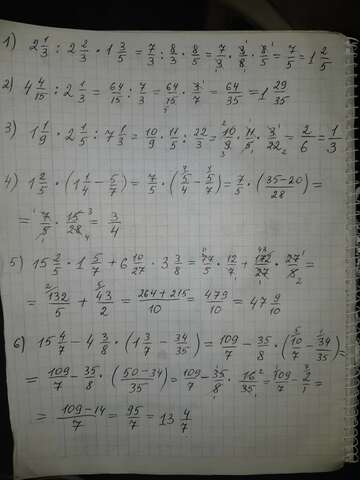 1) 2 1/3 : 2 2/3 · 1 3/5 = 7/3 : 8/3 · 8/5 = 7/3 · 3/8 · 8/5 = 7/5 = 1 2/5
2) 4 4/15 : 2 1/3 = 64/15 : 7/3 = 64/15 · 3/7 = 64/35 = 1 29/35
3) 1 1/9 · 2 1/5 : 7 1/3 = 10/9 · 11/5 : 22/3 = 10/9 · 11/5 · 3/22 = 2/6 = 1/3
4) 1 2/5 · (1 1/4 - 5/7) = 7/5 · (5/4 - 5/7) = 7/5 · (35-20/28) =
= 7/5 · 15/28 = 3/4
5) 15 2/5 · 1 5/7 + 6 10/27 · 3 3/8 = 77/5 · 12/7 + 172/27 · 27/8 =
= 132/5 + 43/2 = 264+215/10 = 479/10 = 47 9/10
6) 15 4/7 - 4 3/8 · (1 3/7 - 34/35) = 109/7 - 35/8 · (10/7 - 34/35) =
= 109/7 - 35/8 · (50-34/35) = 109/7 - 35/8 · 16/35 = 109/7 - 2/1 =
= 109-14/7 = 95/7 = 13 4/7